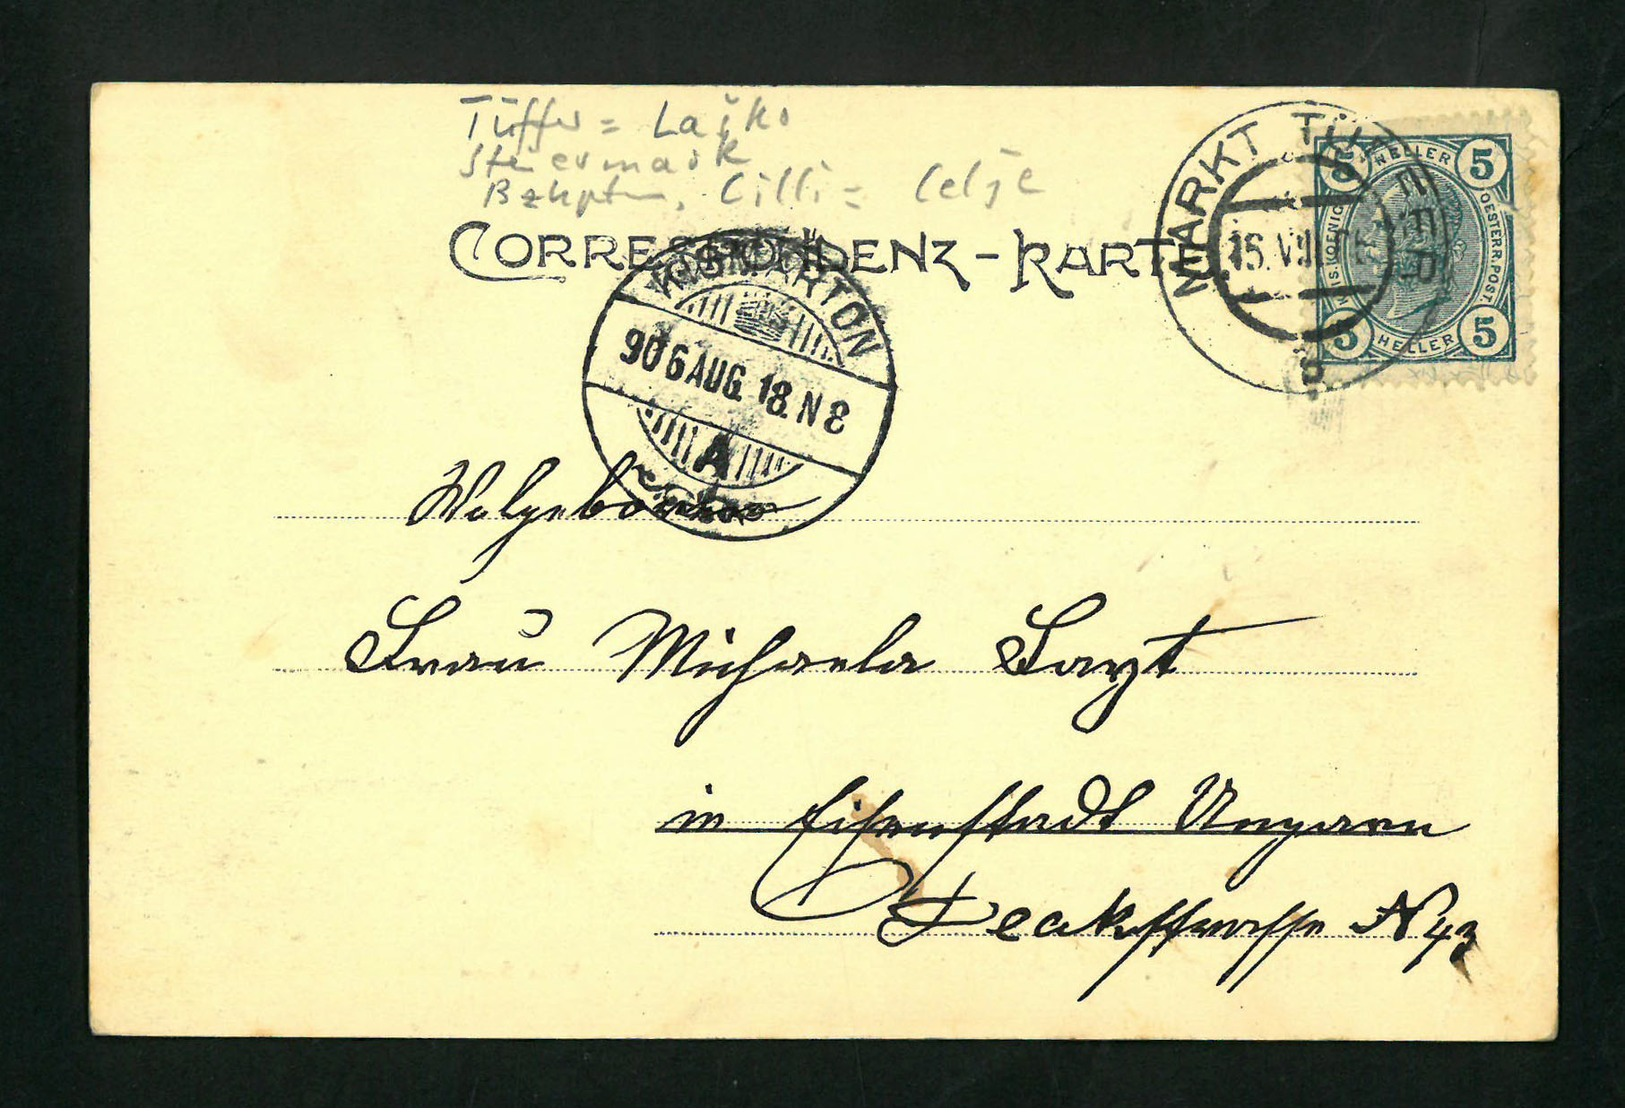 Tüffer = Laško
Steiermark
Bzhptm. Cilli = Celje
CORRESPONDENZ-KARTE
MARKT TÜFFER
5 HELLER 5
OESTERR. POST.
5 HELLER 5
KISMARTON
906 AUG. 18. N 8
A
Frau Michaela
in Eisenstadt Ungarn
Deakstrasse N 43